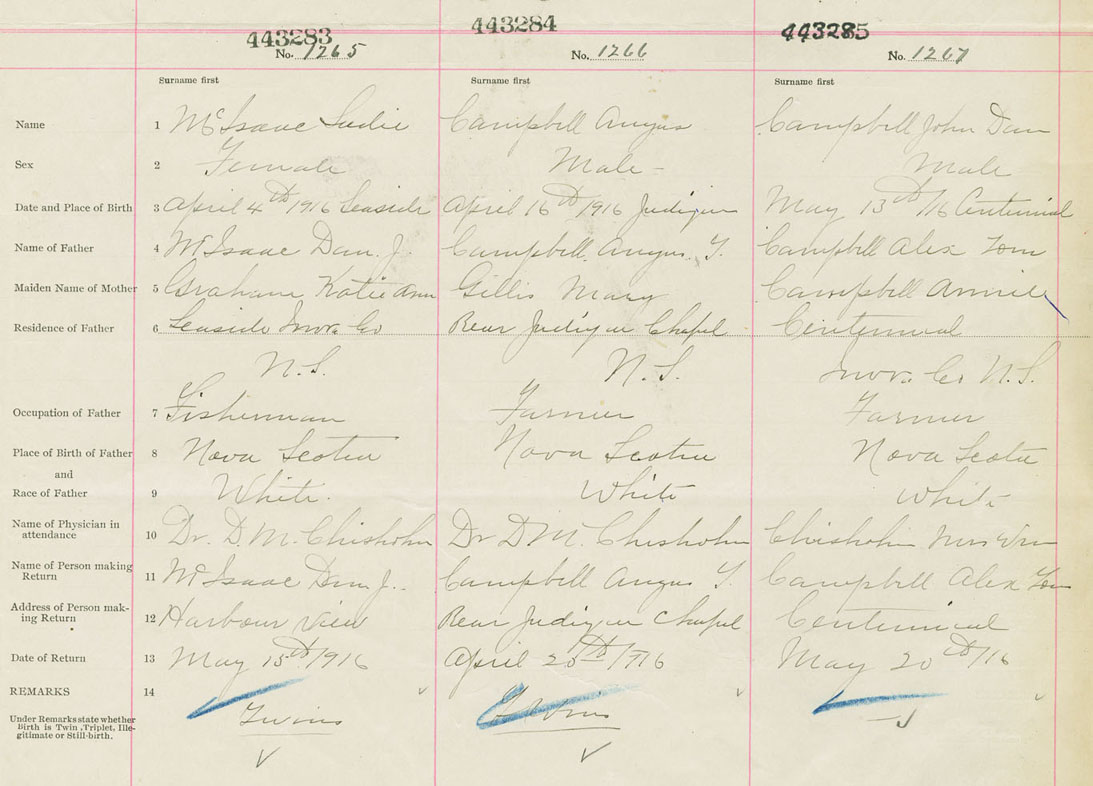 443283 443284 443285
No. 1265 No. 1266 No. 1267
Surname first Surname first Surname first
Name 1 McIsaac Sadie Campbell Angus Campbell John Dan
Sex 2 Female Male - Male
Date and Place of Birth 3 April 4th 1916 Seaside April 16th 1916 Judique May 13th /16 Centennial
Name of Father 4 McIsaac Dan. J. Campbell. Angus. Y. Campbell Alex Tom
Maiden Name of Mother 5 Graham Katie Ann Gillis Mary Campbell Annie
Residence of Father 6 Seaside Inver. Co Rear Judique Chapel Centennial
N.S. N.S. Inver. Co N.S.
Occupation of Father 7 Fisherman Farmer Farmer
Place of Birth of Father 8 Nova Scotia Nova Scotia Nova Scotia
and
Race of Father 9 White. White White
Name of Physician in
attendance 10 Dr. D. M. Chisholm Dr D M. Chisholm Chisholm Mrs Wm
Name of Person making
Return 11 McIsaac Dan J. Campbell Angus Y. Campbell Alex Tom
Address of Person mak-
ing Return 12 Harbour View Rear Judique Chapel Centennial
Date of Return 13 May 15th /1916 April 25th /16 May 20th /16
REMARKS 14
Under Remarks state whether
Birth is Twin, Triplet, Ille-
gitimate or Still-birth.
Twins Twins